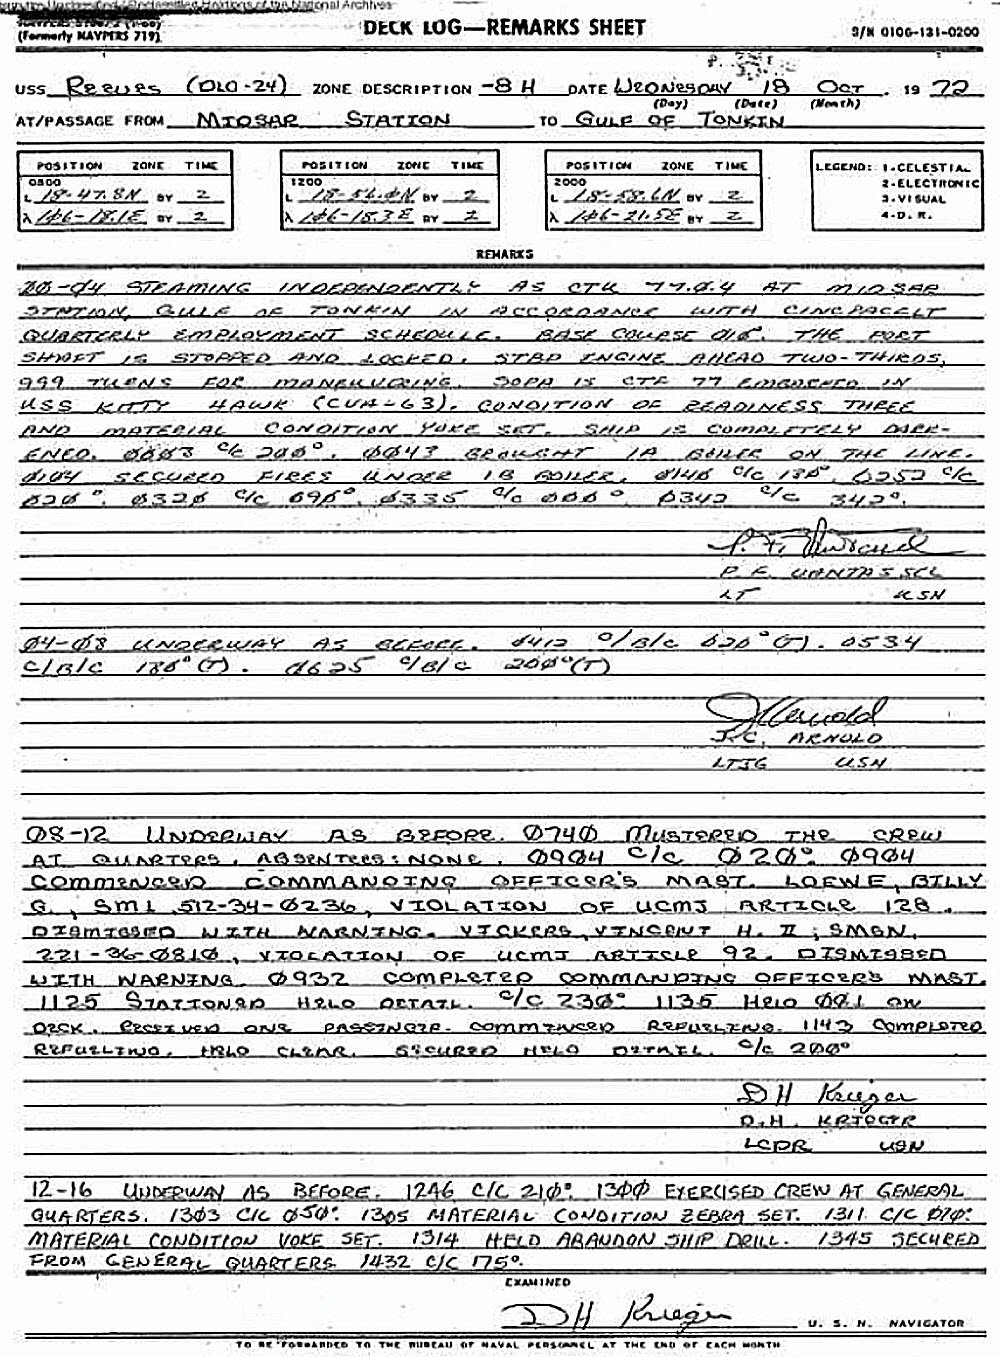 Declassified Holdings of the National Archives
(Formerly NAVPERS 719)
DECK LOG—REMARKS SHEET
S/N 0106-131-0200
USS REEVES (DLG-24) ZONE DESCRIPTION -8 H DATE WEDNESDAY 18 OCT 19 72
(Day) (Date) (Month)
AT/PASSAGE FROM MIDSAR STATION TO GULF OF TONKIN
POSITION ZONE TIME
0800
L 18-47.8N BY 2
λ 106-18.1E BY 2
POSITION ZONE TIME
1200
L 18-56.0N BY 2
λ 106-18.3E BY 2
POSITION ZONE TIME
2000
L 18-58.6N BY 2
λ 106-21.5E BY 2
LEGEND: 1-CELESTIAL
2-ELECTRONIC
3-VISUAL
4-D. R.
REMARKS
00-04 STEAMING INDEPENDENTLY AS CTU 77.0.4 AT MIDSAR
STATION, GULF OF TONKIN IN ACCORDANCE WITH CINCPACFLT
QUARTERLY EMPLOYMENT SCHEDULE. BASE COURSE 018°. THE PORT
SHAFT IS STOPPED AND LOCKED. STBD ENGINE AHEAD TWO-THIRDS,
999 TURNS FOR MANEUVERING. SOPA IS CTF 77 EMBARKED IN
USS KITTY HAWK (CVA-63). CONDITION OF READINESS THREE
AND MATERIAL CONDITION YOKE SET. SHIP IS COMPLETELY DARK-
ENED. 0003 C/C 200°. 0043 BROUGHT 1A BOILER ON THE LINE.
0104 SECURED FIRES UNDER 1B BOILER. 0146 C/C 180°. 0252 C/C
020°. 0320 C/C 090°. 0335 C/C 000°. 0342 C/C 342°.
P. F. VANTASSEL
LT USN
04-08 UNDERWAY AS BEFORE. 0412 C/B/C 020°(T). 0534
C/B/C 180°(T). 0625 C/B/C 200°(T)
J C Arnold
J.C. ARNOLD
LTJG USN
08-12 UNDERWAY AS BEFORE. 0740 MUSTERED THE CREW
AT QUARTERS. ABSENTEES: NONE. 0904 C/C 020°. 0904
COMMENCED COMMANDING OFFICER'S MAST. LOEWE, BILLY
G., SM1, 512-34-0236, VIOLATION OF UCMJ ARTICLE 128.
DISMISSED WITH WARNING. VICKERS, VINCENT H. II, SMSN,
221-36-0810, VIOLATION OF UCMJ ARTICLE 92. DISMISSED
WITH WARNING. 0932 COMPLETED COMMANDING OFFICERS MAST.
1125 STATIONED HELO DETAIL. C/C 230°. 1135 HELO 001 ON
DECK. RECEIVED ONE PASSENGER. COMMENCED REFUELING. 1143 COMPLETED
REFUELING. HELO CLEAR. SECURED HELO DETAIL. C/C 200°
D H Krieger
D.H. KRIEGER
LCDR USN
12-16 UNDERWAY AS BEFORE. 1246 C/C 210°. 1300 EXERCISED CREW AT GENERAL
QUARTERS. 1303 C/C 050°. 1305 MATERIAL CONDITION ZEBRA SET. 1311 C/C 070°.
MATERIAL CONDITION YOKE SET. 1314 HELD ABANDON SHIP DRILL. 1345 SECURED
FROM GENERAL QUARTERS. 1432 C/C 175°.
EXAMINED
D H Krieger U. S. N. NAVIGATOR
TO BE FORWARDED TO THE BUREAU OF NAVAL PERSONNEL AT THE END OF EACH MONTH